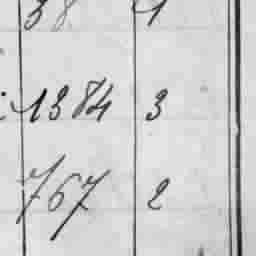 38 1
1384 3
767 2